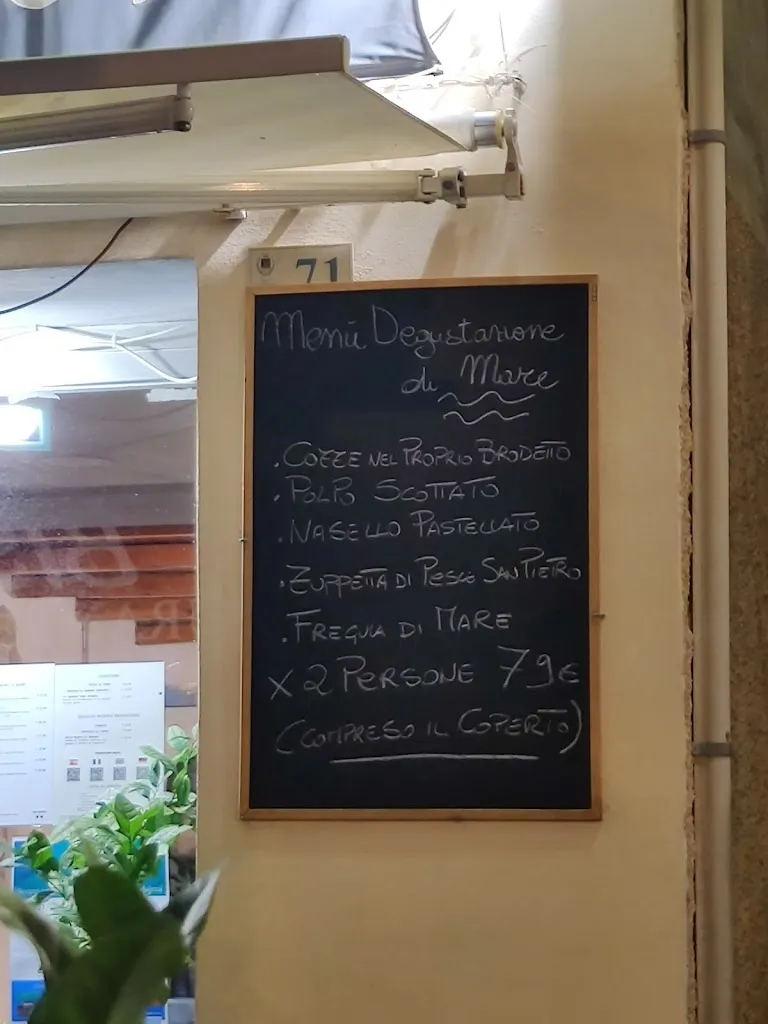 71
Menù Degustazione
di Mare
. COZZE NEL PROPRIO BRODETTO
. POLPO SCOTTATO
. NASELLO PASTELLATO
. ZUPPETTA DI PESCE SAN PIETRO
. FREGULA DI MARE
X 2 PERSONE 79€
(COMPRESO IL COPERTO)